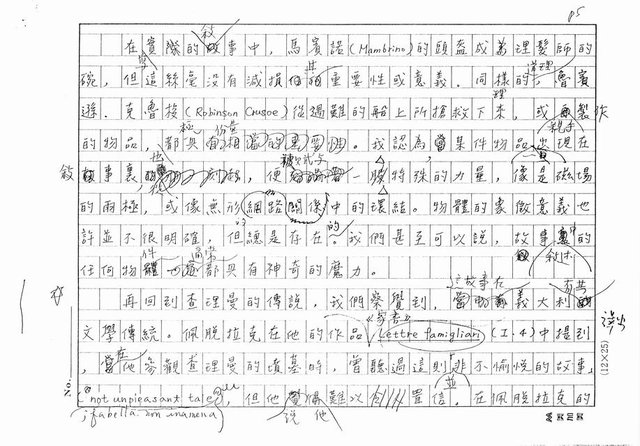 P5
在實際的敘事中，馬賓諾(Mambrino)的頭盔成為理髮師的
碗，但這絲毫沒有減損其重要性或意義。同樣的，魯賓
遜．克魯梭(Robinson Crusoe)從遇難的船上所搶救下來，或製作
的物品，都具極份量。我認為，當某件物品出現在
敘事裏，便被賦予一股特殊的力量，像是磁場
的兩極，或像無形網路關係中的環結。物體的象徵意義也
許並不很明確，但總是存在的。我們甚至可以說，敘事中的
任何物件通常都具有神奇的魔力。
再回到查理曼的傳說，我們察覺到，這故事在義大利
文學傳統。佩脫拉克在他的作品《家書》(Lettre famigliari)(I.4)中提到
，當他參觀查理曼的墳墓時，曾聽過這則並非不愉悅的故事，
(not unpleasant tale)，但他說他難以置信。在佩脫拉克的
(fabella non inamena)
No.
(12×25)